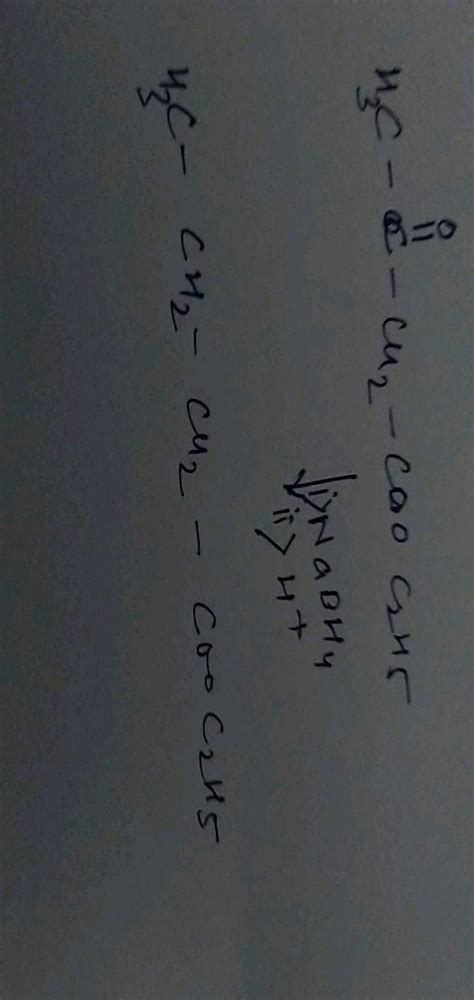 O
||
H3C - C - CH2 - COO C2H5
i> NaOH4
ii> H+
H3C - CH2 - CH2 - COO C2H5